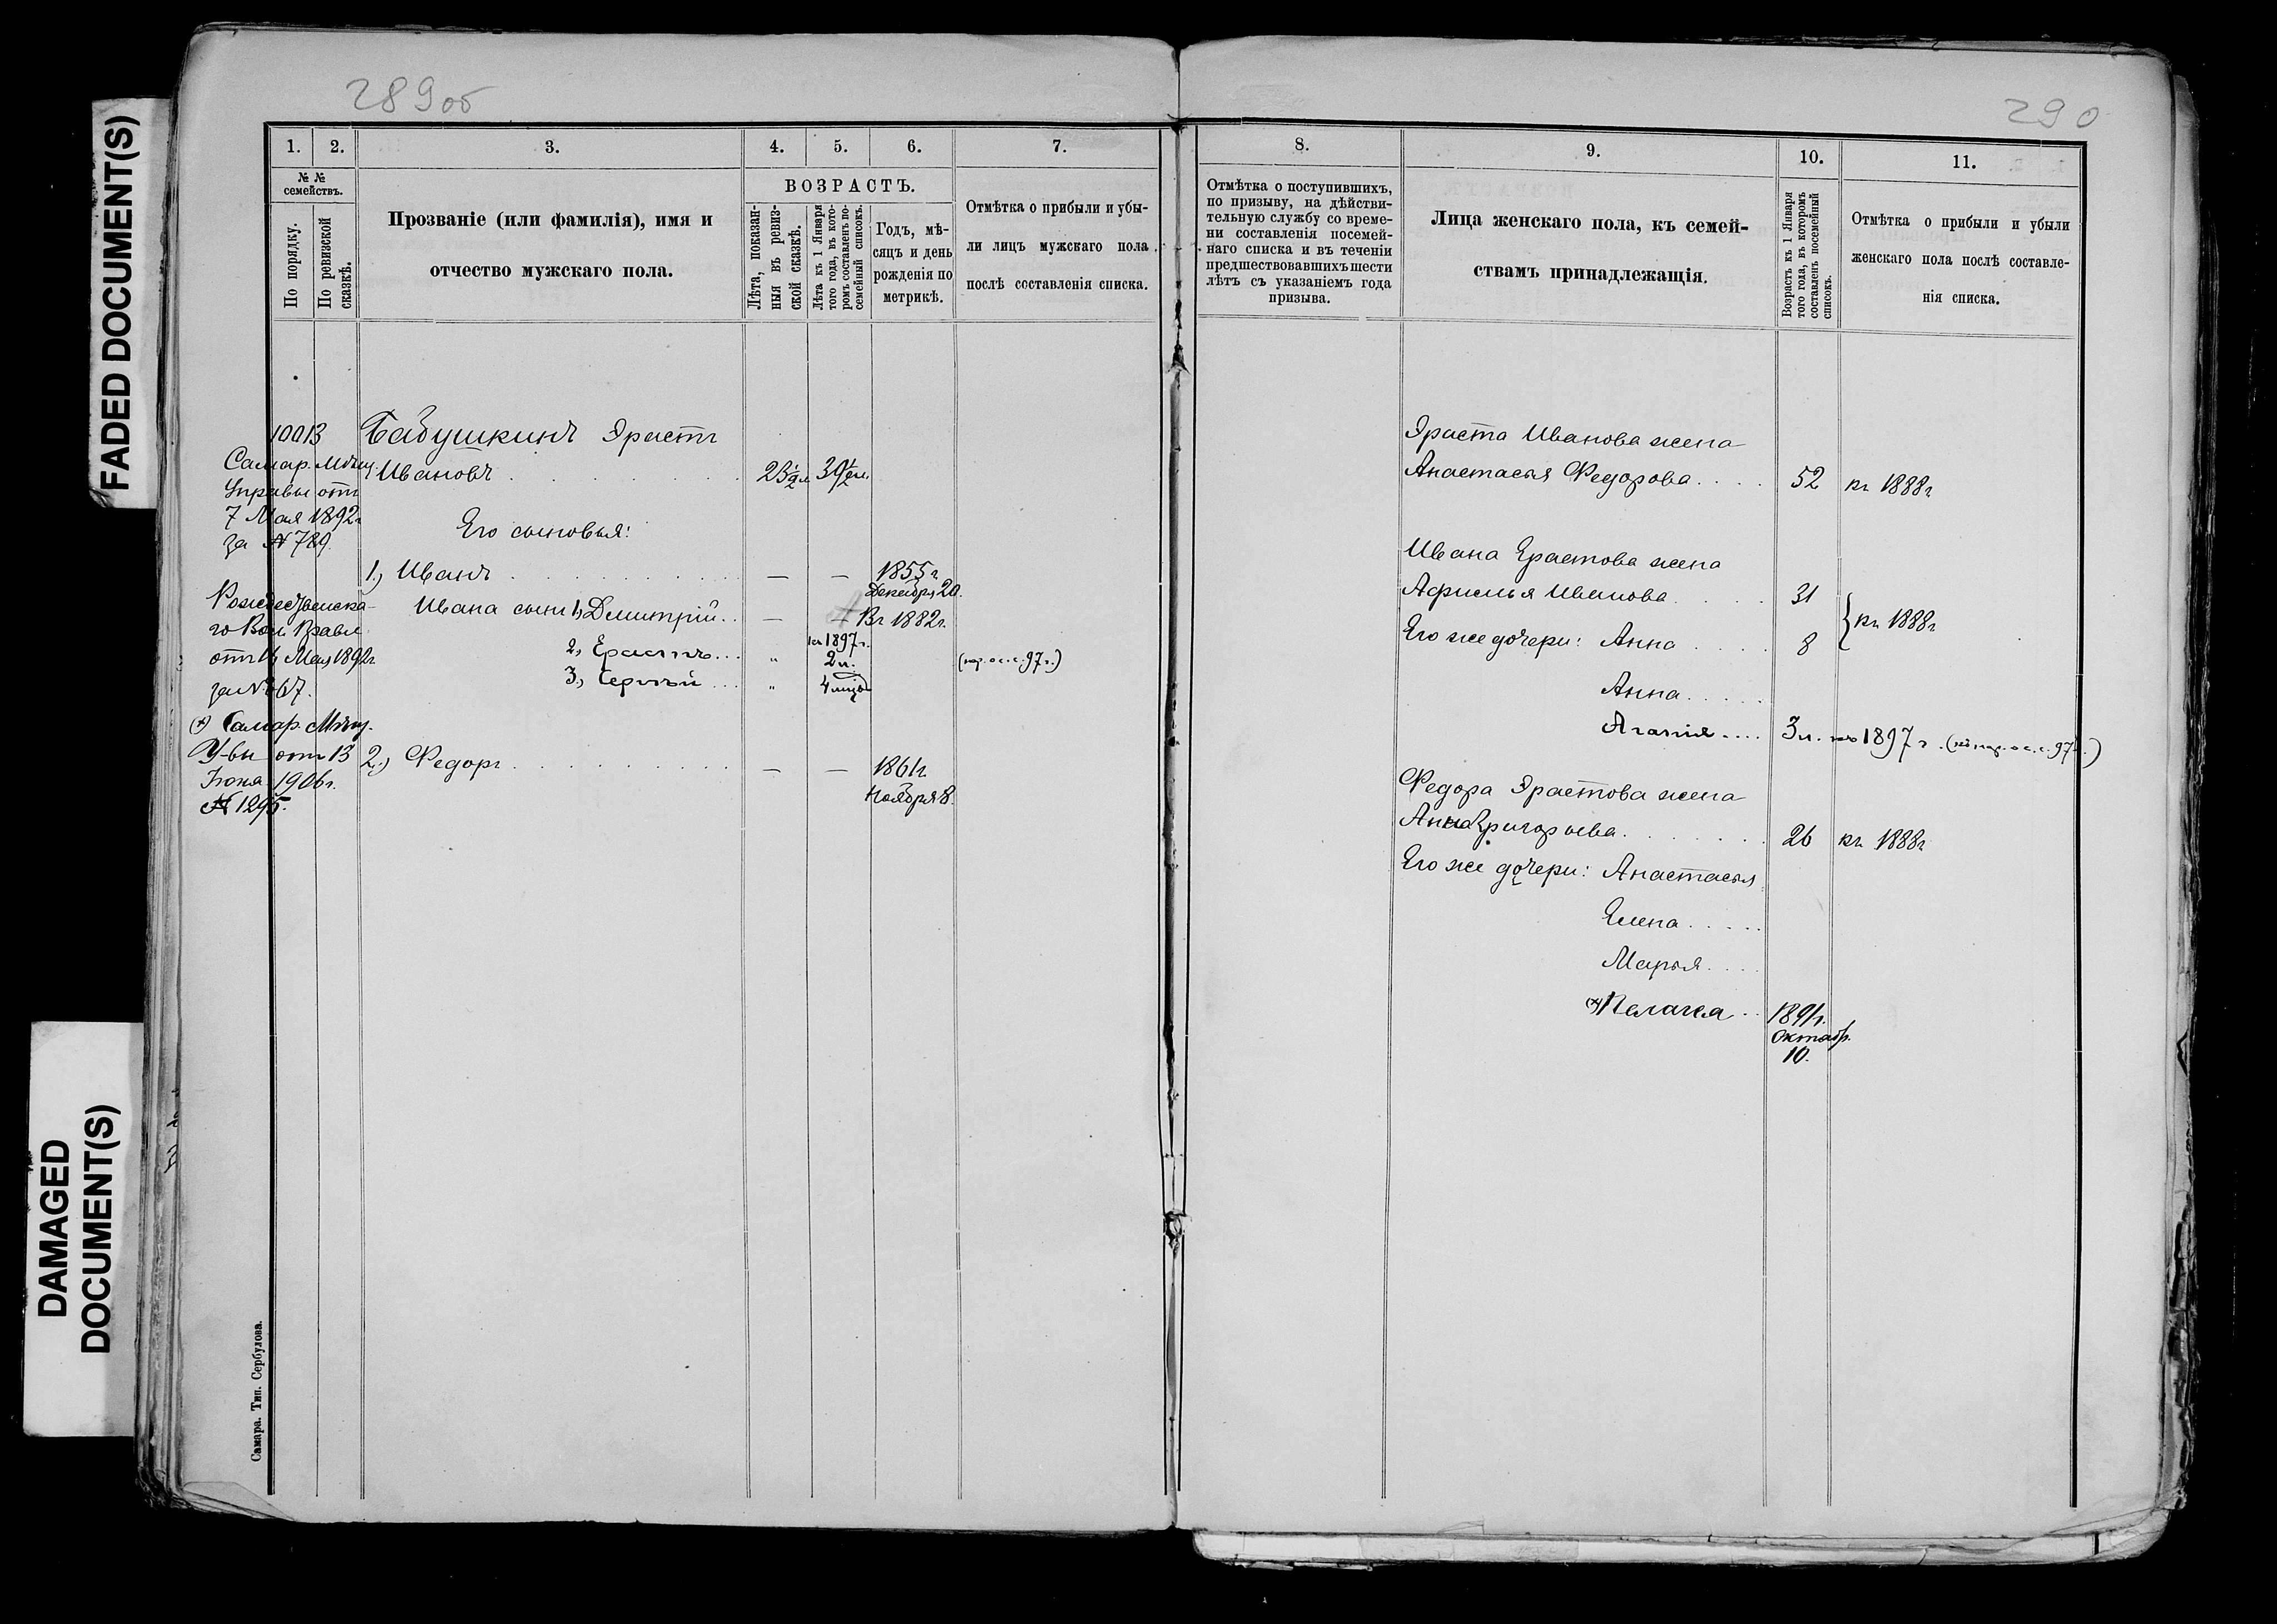 FADED DOCUMENT(S)
DAMAGED
DOCUMENT(S)
289об
1.
2.
3.
4.
5.
6.
7.
№ №
семействъ.
По порядку.
По ревизской
сказкѣ.
Прозваніе (или фамилія), имя и
отчество мужскаго пола.
ВОЗРАСТЪ.
Лѣта, показан-
ныя въ ревиз-
ской сказкѣ.
Лѣта къ 1 Января
того года, въ кото-
ромъ составленъ по-
семейный списокъ.
Годъ, мѣ-
сяцъ и день
рожденія по
метрикѣ.
Отмѣтка о прибыли и убы-
ли лицъ мужскаго пола
послѣ составленія списка.
10013
Бабушкинъ Эрастъ
Ивановъ
23½л.
39½л.
Самар. Мѣщ.
Управы отъ
7 Мая 1892г
за № 789.
Его сыновья:
1.) Иванъ
— — 1855г.
Декабря 20.
Ивана сын. 1, Дмитрій
— — Въ 1882г.
къ 1897г.
2, Ерастъ
„ 2л.
(пар. о с. с. 97 г.)
3, Сергѣй
„ 4 мѣс
Рождественска-
го Вол. Правл
отъ 14 Мая 1892г
за № 367.
(х) Самар. Мѣщ.
У-вы отъ 13
Іюня 1906г.
№ 1295.
2.) Федоръ
— — 1861г
Ноября 8.
Самара. Тип. Сербулова.
290
8.
9.
10.
11.
Отмѣтка о поступившихъ,
по призыву, на дѣйстви-
тельную службу со време-
ни составленія посемей-
наго списка и въ теченіи
предшествовавшихъ шести
лѣтъ съ указаніемъ года
призыва.
Лица женскаго пола, къ семей-
ствамъ принадлежащія.
Возрастъ къ 1 Января
того года, въ которомъ
составленъ посемейный
списокъ.
Отмѣтка о прибыли и убыли
женскаго пола послѣ составле-
нія списка.
Эраста Иванова жена
Анастасья Федорова
52
къ 1888г
Ивана Ерастова жена
Афимья Иванова
31
Его же дочери: Анна
8
къ 1888г
Анна
Агапія
3л. къ 1897 г.
Федора Эрастова жена
Анна Григорьева
26
къ 1888г
Его же дочери: Анастасья
Елена
Марья
(х) Пелагея
1891г.
Октябр.
10.